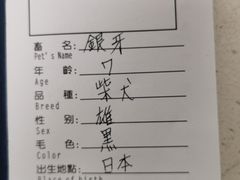 畜 名: 銀牙
Pet's Name
年 齡: 7
Age
品 種: 柴犬
Breed
性 別: 雄
Sex
毛 色: 黑
Color
出生地點: 日本
Place of birth